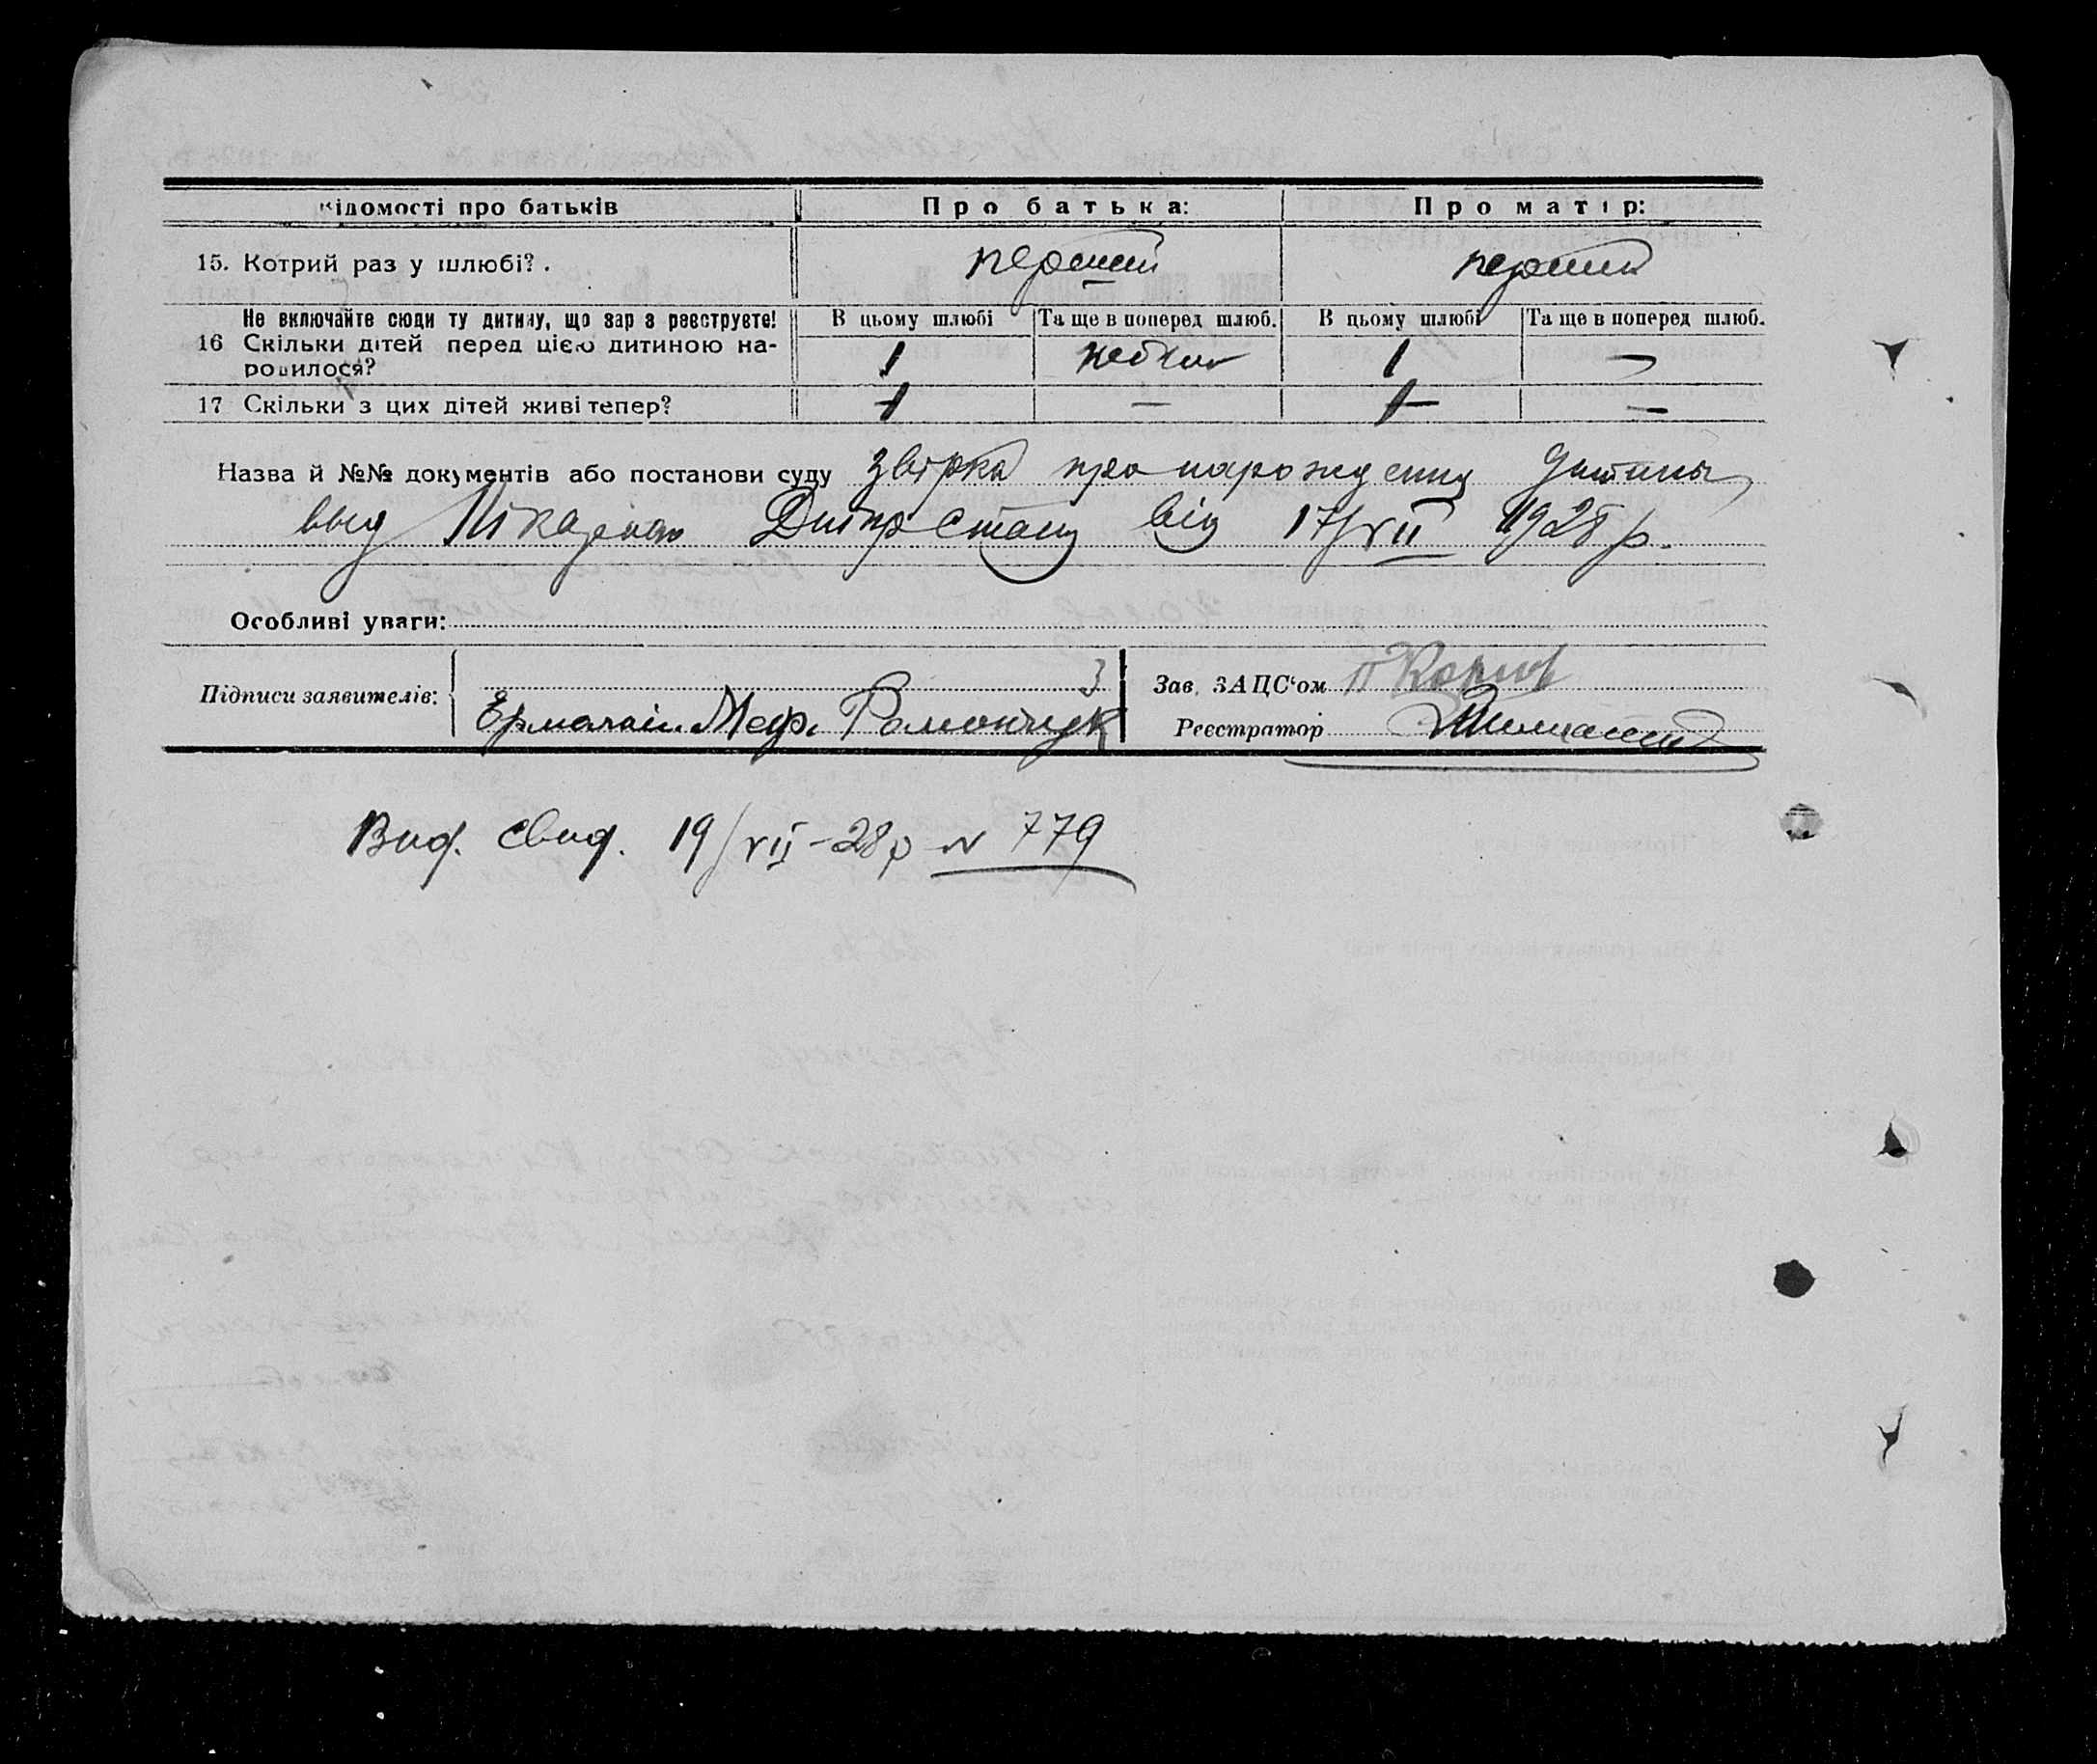 Відомості про батьків
Про батька:
Про матір:
15. Котрий раз у шлюбі?.
перший
перший
Не включайте сюди ту дитину, що зараз реєструєте!
В цьому шлюбі
Та ще в поперед шлюб.
В цьому шлюбі
Та ще в поперед шлюб.
16 Скільки дітей перед цією дитиною на-
родилося?
1
—
1
—
17 Скільки з цих дітей живі тепер?
1
—
1
—
Назва й №№ документів або постанови суду
про нарождення дитини
вид Дніпрстану від 17/VII 1928 р.
Особливі уваги:
Підписи заявителів:
Меф. Романчук
Зав. ЗАЦС‘ом
Реєстратор
Вид. свид. 19/VII-28р N 779